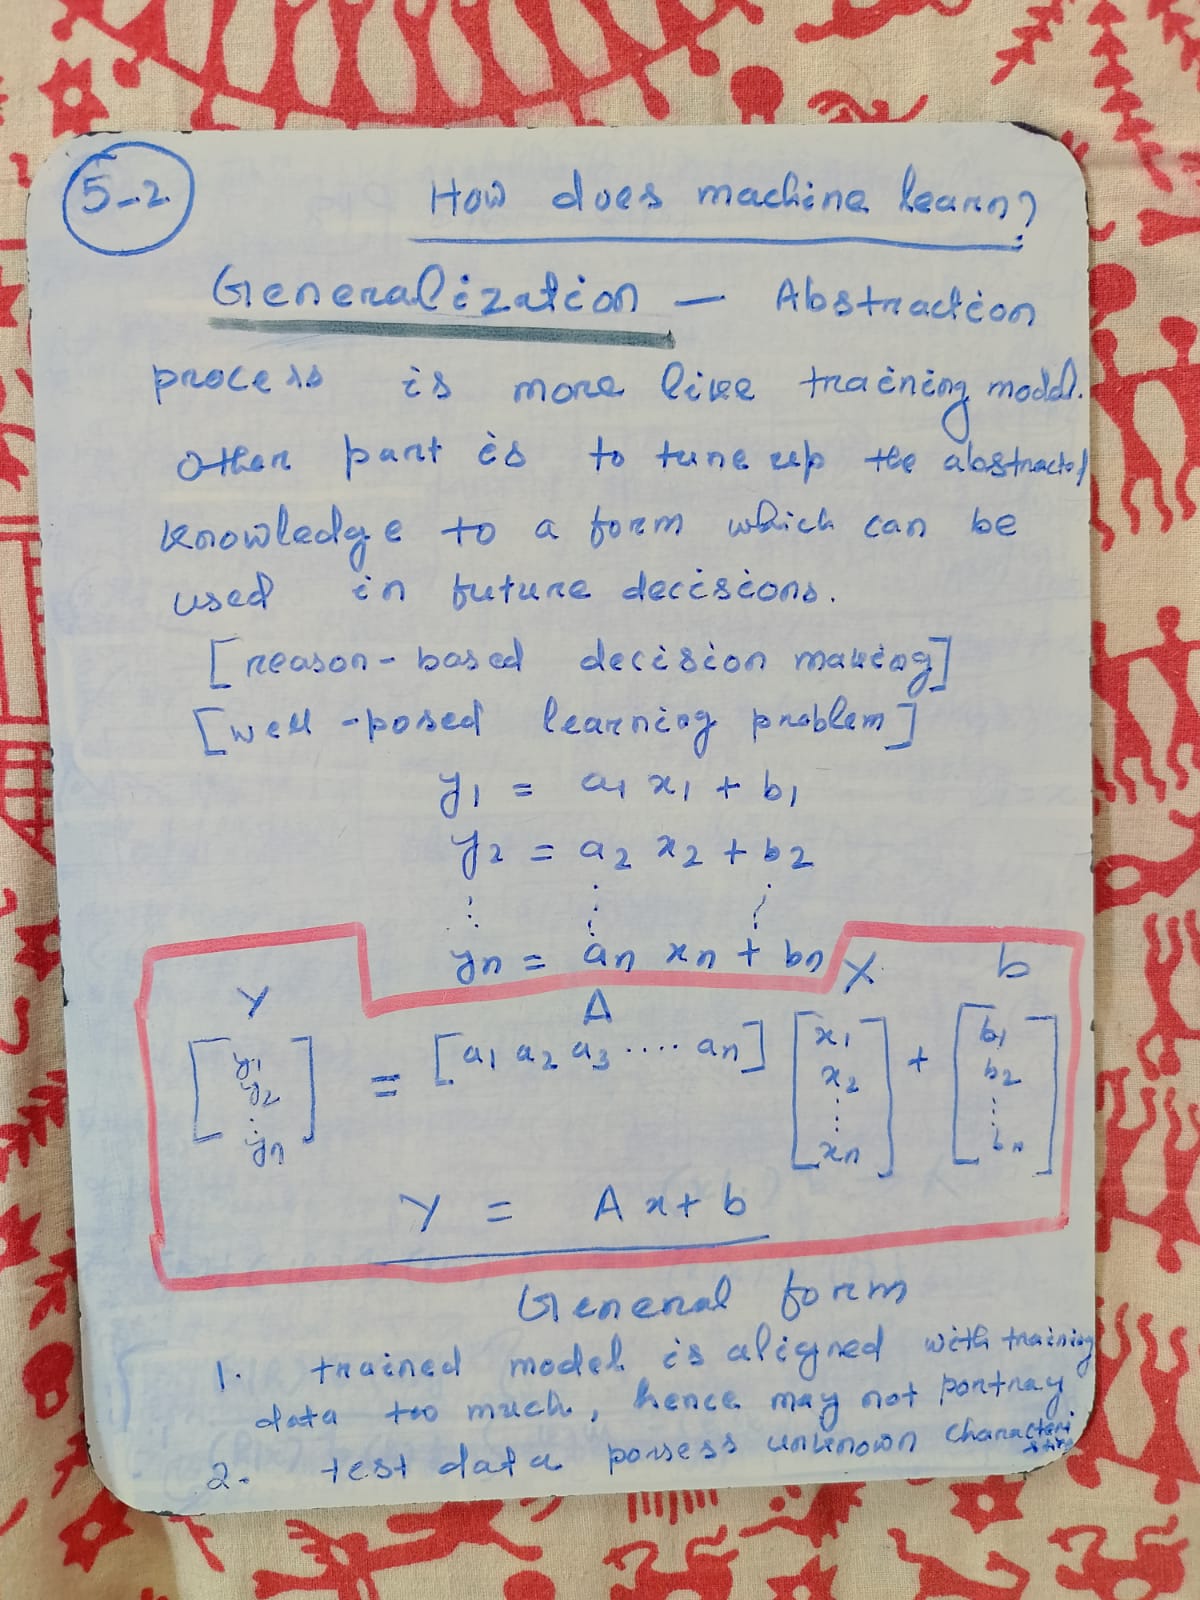 5-2
How does machine learn?
Generalization — Abstraction
process is more like training model.
Other part is to tune up the abstracted
knowledge to a form which can be
used in future decisions.
[reason-based decision making]
[well-posed learning problem]
y1 = a1 x1 + b1
y2 = a2 x2 + b2
⋮ ⋮ ⋮
yn = an xn + bn
Y A X b
[y1 y2 ⋮ yn] = [a1 a2 a3 .... an] [x1 x2 ⋮ xn] + [b1 b2 ⋮ bn]
Y = Ax + b
General form
1. trained model is aligned with training
data too much, hence may not portray
2. test data possess unknown characteristics